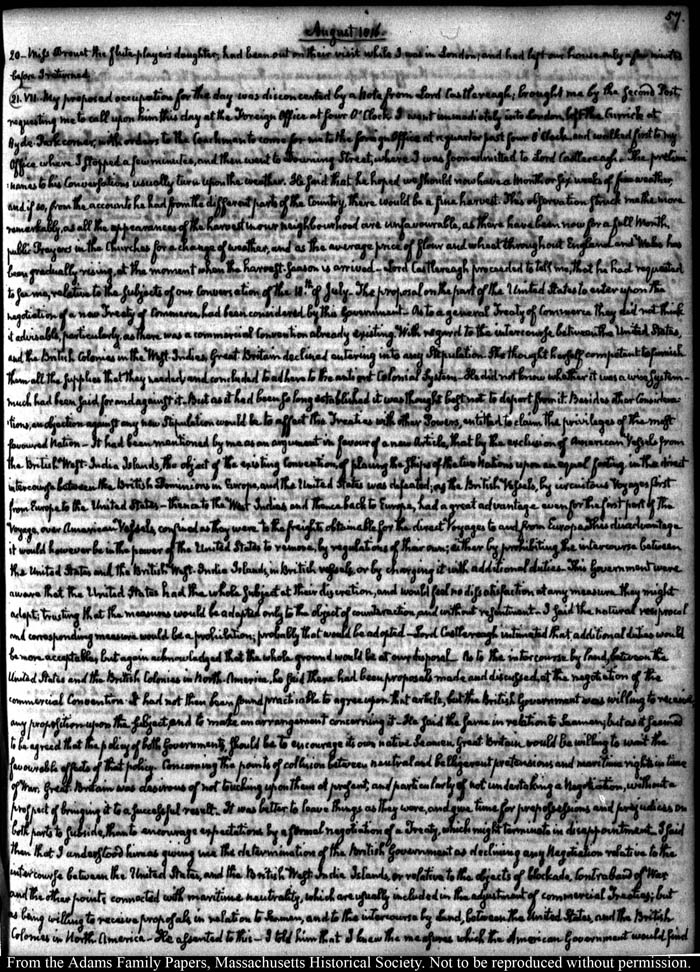 57.
August 1816.
20 — Miss Drouet the flute-player's daughter, had been out on their visit while I was in London, and had left our house only a few minutes
before I returned.
21. VII. My proposed occupation for the day was disconcerted by a Note from Lord Castlereagh, brought me by the Second Post
requesting me to call upon him this day at the Foreign Office at four O'Clock. I went immediately into London, left the Carriage at
Hyde Park corner, with orders to the Coachman to come for me to the foreign Office at a quarter past four O'Clock and walked first to my
Office where I stopped a few minutes, and then went to Downing Street, where I was soon admitted to Lord Castlereagh. The prelimi-
naries to his Conversations usually turn upon the weather. He said that he hoped we should now have a Month or six weeks of fine weather,
and if so, from the accounts he had from the different parts of the Country, there would be a fine harvest. This observation struck me the more
remarkably, as all the appearances of the harvest in our neighbourhood are unfavourable, as there have been now for a full Month,
public Prayers in the Churches for a change of weather, and as the average price of flour and wheat throughout England and Wales has
been gradually rising, at the moment when the harvest-season is arrived — Lord Castlereagh proceeded to tell me, that he had requested
to see me, relative to the subjects of our Conversation of the of July — The proposal on the part of the United States to enter upon the
negotiation of a new Treaty of Commerce, had been considered by this Government — As to a general Treaty of Commerce they did not think
it advisable, particularly as there was a commercial Convention already existing. With regard to the intercourse between the United States,
and the British Colonies in the West Indies, Great Britain declined entering into any Stipulation. She thought herself competent to furnish
them all the supplies that they needed and concluded to adhere to the antient Colonial System — He did not know whether it was a wise System —
much had been said for and against it — But as it had been so long established it was thought best not to depart from it. Besides other Considera-
tions, an objection against any new Stipulation would be to affect the Treaties with other Powers, entitled to claim the privileges of the most
favoured Nation — It had been mentioned by me as an argument in favour of a new Article, that by the exclusion of American Vessels from
the British West-India Islands, the object of the existing convention, of placing the Ships of the two Nations upon an equal footing in the direct
intercourse between the British Dominions in Europe, and the United States was defeated; as the British Vessels, by circuitous Voyages first
from Europe to the United States — thence to the West Indies and thence back to Europe, had a great advantage even for the first part of the
Voyage, over American Vessels, confined as they were to the freights obtainable for the direct Voyages to and from Europe. This disadvantage
it would however be in the power of the United States to remove, by regulations of their own; either by prohibiting the intercourse between
the United States and the British West-India Islands, in British vessels, or by charging it with additional duties — This Government were
aware that the United States had the whole subject at their discretion, and would feel no dissatisfaction at any measure they might
adopt; trusting that the measures would be adapted only to the object of counteraction, and without resentment — I said the natural reciprocal
and corresponding measure would be a prohibition; probably that would be adopted — Lord Castlereagh intimated that additional duties would
be more acceptable, but again acknowledged that the whole ground would be at our disposal — As to the intercourse by land, between the
United States and the British Colonies in North-America, he said there had been proposals made and discussed, at the negotiation of the
commercial Convention — It had not then been found practicable to agree upon that article, but the British Government was willing to receive
any proposition upon the subject, and to make an arrangement concerning it — He said the same in relation to Seamen; but as it seemed
to be agreed that the policy of both Governments, should be to encourage its own native Seamen, Great Britain would be willing to wait the
favourable effects of that policy. Concerning the points of collision between neutral and belligerent pretensions, and maritime rights in time
of War, Great Britain was desirous of not touching upon them at present, and particularly of not undertaking a Negotiation, without a
prospect of bringing it to a successful result — It was better to leave things as they were, and give time for prepossessions and prejudices on
both parts to subside, than to encourage expectations by a formal negotiation of a Treaty, which might terminate in disappointment — I said
then that I understood him as giving me the determination of the British Government as declining any Negotiation relative to the
intercourse between the United States, and the British West-India Islands, or relative to the objects of blockade, contraband of War
and the other points connected with maritime neutrality, which are usually included in the adjustment of commercial Treaties; but
as being willing to receive proposals in relation to Seamen, and to the intercourse by land, between the United States, and the British
Colonies in North America — He assented to this — I told him that I knew the measures which the American Government would find
From the Adams Family Papers, Massachusetts Historical Society. Not to be reproduced without permission.